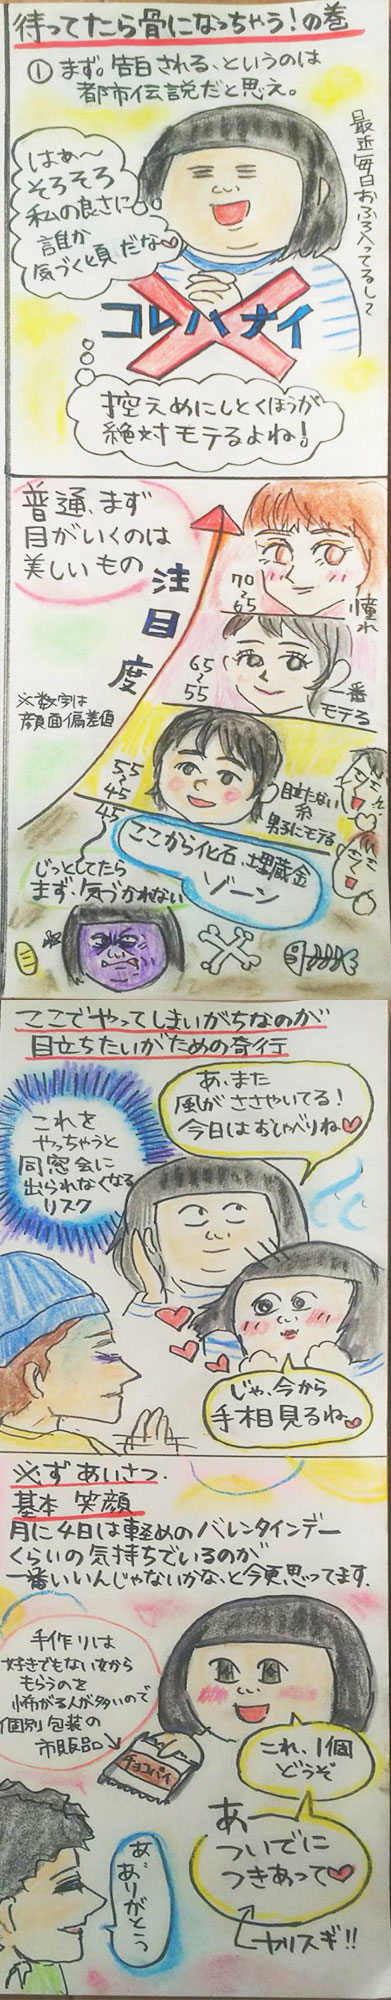 待ってたら骨になっちゃう！の巻
① まず。告白される、というのは
都市伝説だと思え。
はぁ〜
そろそろ
私の良さに
誰か
気づく頃だな♥
最近毎日おふろ入ってるし？
コレハナイ
控えめにしとくほうが
絶対モテるよね！
普通、まず
目がいくのは
美しいもの
注目度
※数字は
顔面偏差値
70
〜
65
憧れ
65
〜
55
一番
モテる
55
〜
45
目立たない
系
男子にモテる
45
ここから化石、埋蔵金
ゾーン
じっとしてたら
まず、気づかれない
ここでやってしまいがちなのが
目立ちたいがための奇行
これを
やっちゃうと
同窓会に
出られなくなる
リスク
あ、また
風がささやいてる！
今日はおしゃべりね♥
じゃ、今から
手相見るね♥
必ずあいさつ。
基本 笑顔
月に4日は軽めのバレンタインデー
くらいの気持ちでいるのが
一番いいんじゃないかな、と今更思ってます。
手作りは
好きでもない女から
もらうのを
怖がる人が多いので
個別包装の
市販品
チョコパイ
これ、1個
どうぞ
あー
ついでに
つきあって♥
ヤリスギ!!
あ、
ありがとう